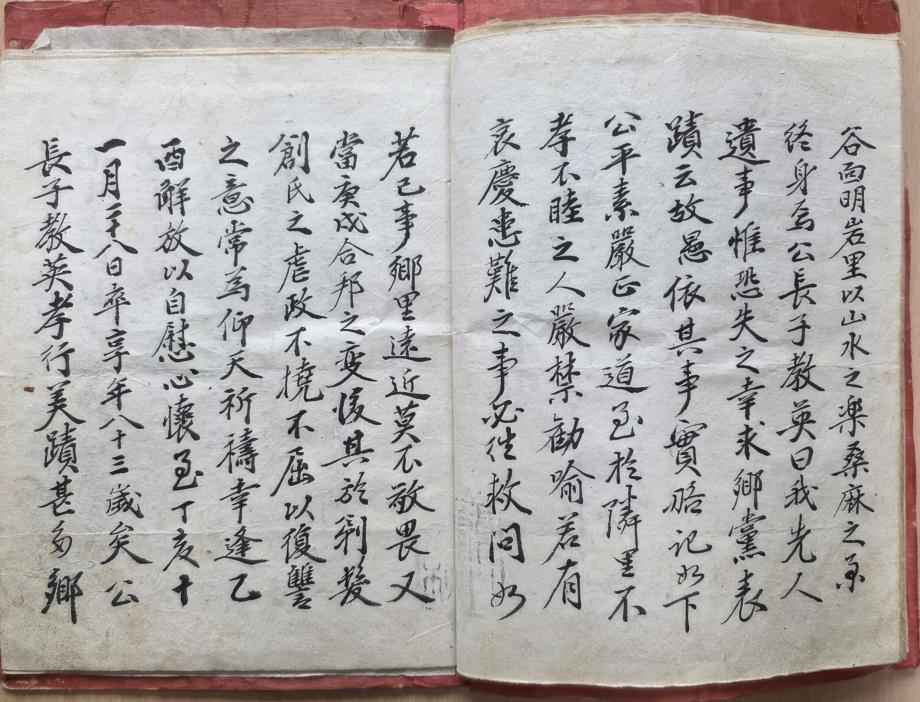 谷向明岩里以山水之楽桑麻之不
终身焉公長子教英曰我先人
遺事惟恐失之幸求鄉黨表
蹟云故愚依其事實略记如下
公平素嚴正家道至於隣里不
孝不睦之人嚴禁勸喻若有
哀慶患難之事必往救问如
若己事鄉里遠近莫不敬畏又
當庚戌合邦之变後其於剃髮
創氏之虐政不撓不屈以復讐
之意常為仰天祈禱幸逢乙
酉解放以自慰心懷至丁亥十
一月二十八日卒享年八十三歳矣公
長子教英孝行美蹟甚多鄉